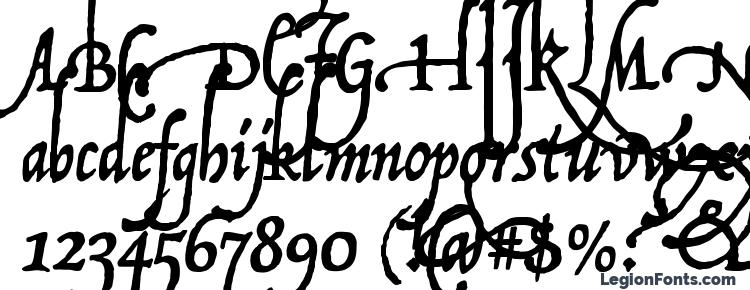 ABCDEFGHIJKLMN
abcdefghijklmnopqrstuvwxy
1234567890 (.!a#$%: &
LegionFonts.com